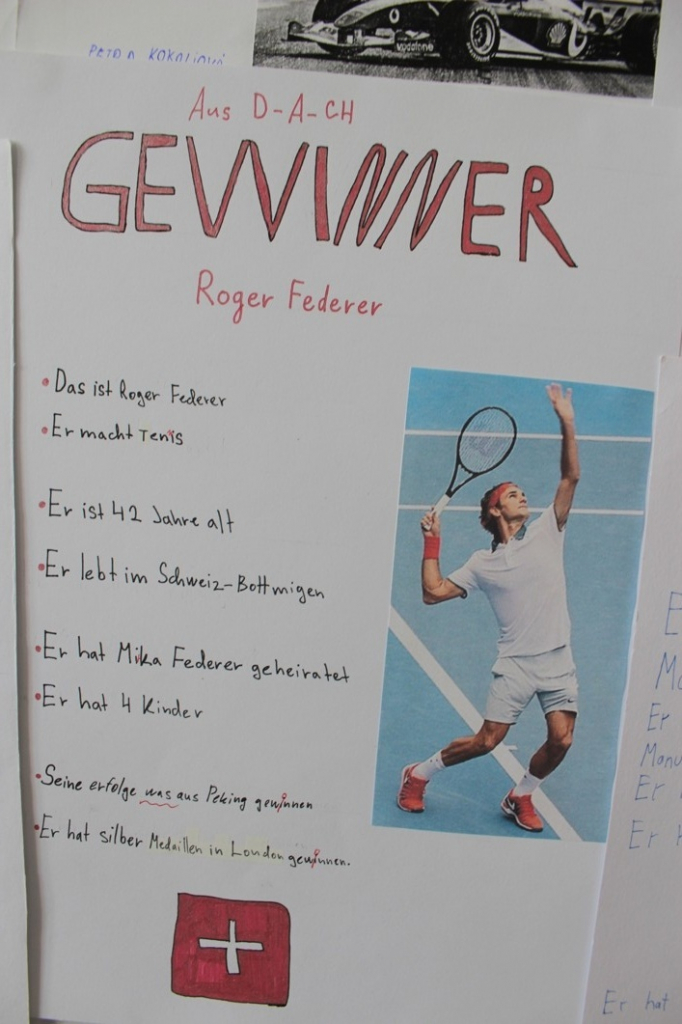 PETRA
vodafone
Aus D-A-CH
GEWINNER
Roger Federer
• Das ist Roger Federer
• Er macht Tenis
• Er ist 42 Jahre alt
• Er lebt im Schweiz-Bottmigen
• Er hat Mika Federer geheiratet
• Er hat 4 Kinder
• Seine erfolge was aus Peking gewinnen
• Er hat silber Medaillen in London gewinnen.
Er
Er
Er
Er hat